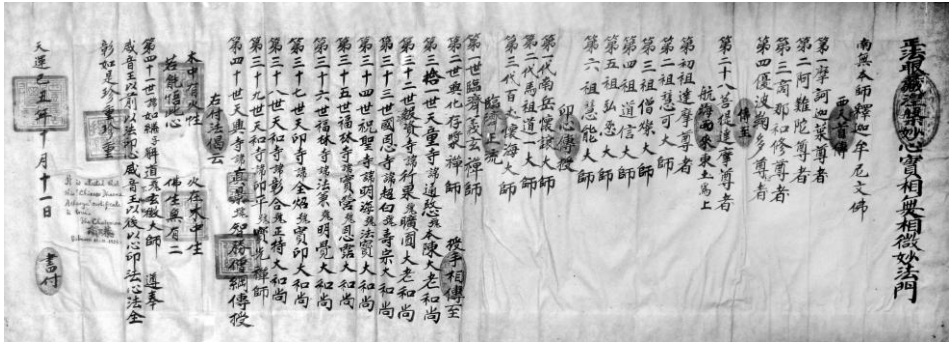 正法眼藏涅槃妙心實相無相微妙法門
南無本師釋迦牟尼文佛
西天首傳
第一摩訶迦葉尊者
第二阿難陀尊者
第三商那和修尊者
第四優波鞠多尊者
傳至
第二十八菩提達摩尊者
航海西來東土為上
第初祖達摩尊者
第二祖慧可大師
第三祖僧燦大師
第四祖道信大師
第五祖弘忍大師
第六祖慧能大師
印心傳授
第一代南岳懷讓大師
第二代馬祖道一大師
第三代百丈懷海大師
臨濟上流
第一世臨濟義玄禪師
第二世興化存奬禪師
授手相傳至
第三拾一世天童寺諱通忞號木陳大老和尚
第三十二世報資寺諱行東號曠圓大老和尚
第三十三世國恩寺諱超白號壽宗大和尚
第三十四世祝聖寺諱明海號法寶大和尚
第三十五世福林寺諱實營號恩霑大和尚
第三十六世福林寺諱法策號明覺大和尚
第三十七世天印寺諱全焰號寶印大和尚
第三十八世天和寺諱彰合號正持大和尚
第三十九世天和寺諱印平號寶光禪師
第四十世天興寺諱真景號智勝僧綱傳授
右付法偈云
木中有火性 火在木中生
若能信心 佛生無有二
第四十一世諱如緣字解道號玄徹大師 遵奉
威音王以前以法印心威音王以後以心印法心法全
彰如是珍重珍重
天運己丑年十月十一日 書付